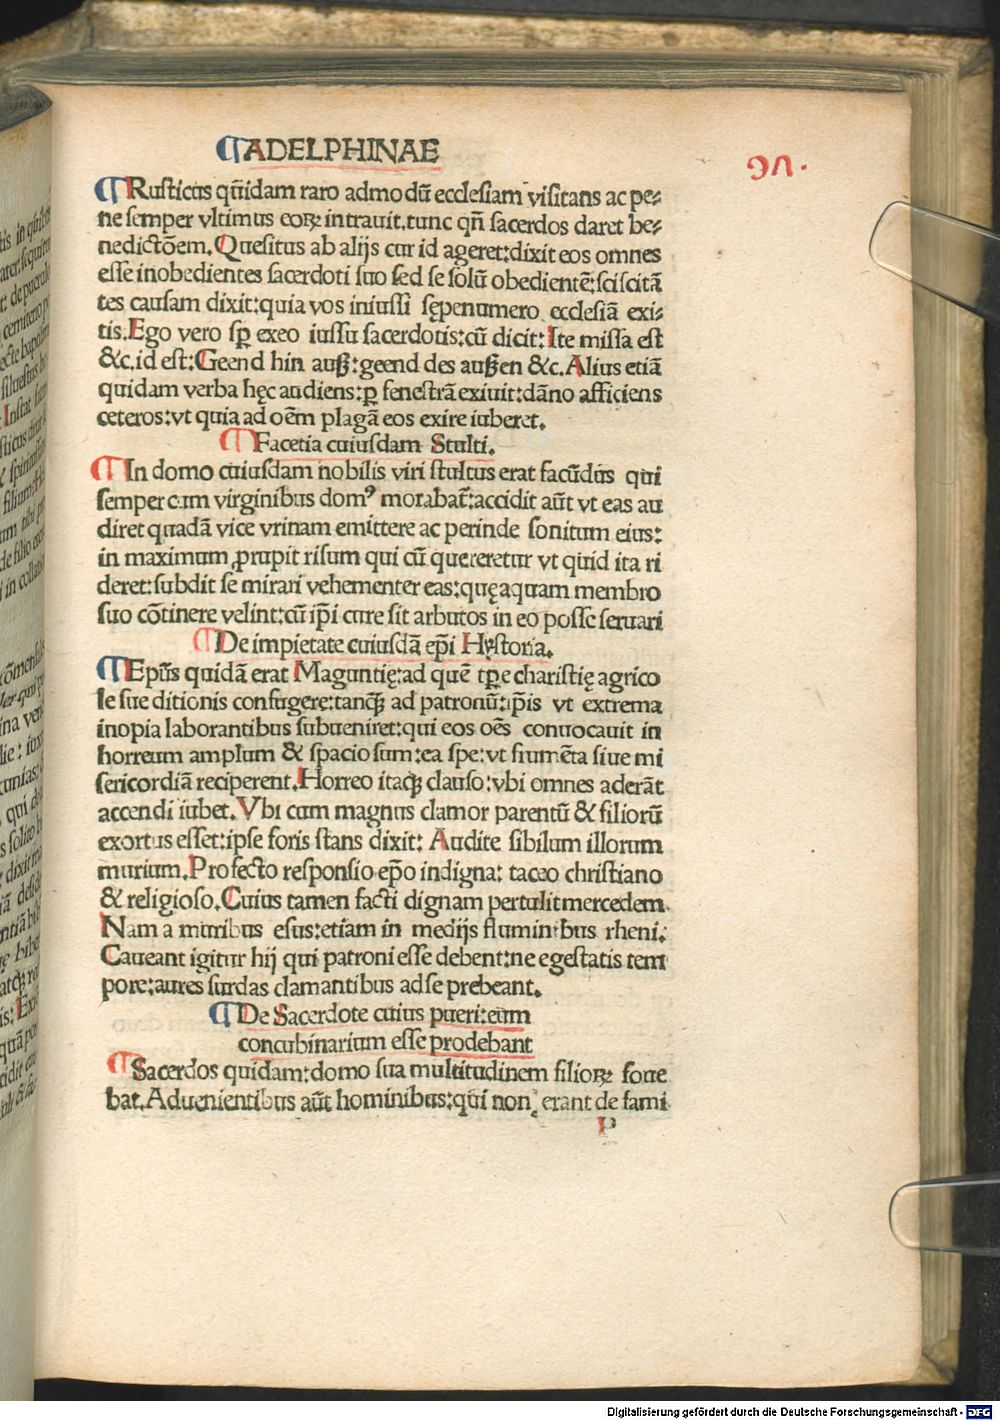 ¶ADELPHINAE
¶Rusticus qͥdam raro admodū ecclesiam visitans ac pe⸗
ne semper vltimus eoꝝ intrauit.tunc qn̄ sacerdos daret be⸗
nedictōem.Quesitus ab alijs cur id ageret:dixit eos omnes
esse inobedientes sacerdoti suo sed se solū obedientē:sciscitā
tes causam dixit:quia vos iniussi sępenumero ecclesiā exi⸗
tis.Ego vero sꝑ exeo iussu sacerdotis:cū dicit:Ite missa est
&c.id est:Geend hin auß:geend des außen &c.Alius etiā
quidam verba hęc audiens:ꝑ fenestrā exiuit:dāno afficiens
ceteros:vt quia ad oēm plagā eos exire iuberet.
¶Facetia cuiusdam Stulti.
¶In domo cuiusdam nobilis viri stultus erat facūdus qui
semper cum virginibus domꝰ morabat̄:accidit aūt vt eas au
diret quadā vice vrinam emittere ac perinde sonitum eius:
in maximum ꝓrupit risum qui cū quereretur vt quid ita ri
deret:subdit se mirari vehementer eas:quę aquam membro
suo cōtinere velint:cū ip̄i cure sit arbutos in eo posse seruari
¶De impietate cuiusdā ep̄i Hystoria.
¶Ep̄us quidā erat Maguntię:ad quē tꝑe charistię agrico
le sue ditionis confugere:tanqꝫ ad patronū:ip̄is vt extrema
inopia laborantibus subueniret:qui eos oēs conuocauit in
horreum amplum & spaciosum:ea spe:vt frumēta siue mi
sericordiā reciperent.Horreo itaqꝫ clauso:vbi omnes aderāt
accendi iubet.Vbi cum magnus clamor parentū & filiorū
exortus esset:ipse foris stans dixit: Audite sibilum illorum
murium.Profecto responsio ep̄o indigna: taceo christiano
& religioso.Cuius tamen facti dignam pertulit mercedem.
Nam a muribus esus:etiam in medijs fluminibus rheni.
Caueant igitur hij qui patroni esse debent:ne egestatis tem
pore:aures surdas clamantibus ad se prebeant.
¶De Sacerdote cuius pueri:eum
concubinarium esse prodebant
¶Sacerdos quidam:domo sua multitudinem filioꝝ foue
bat.Aduenientibus aūt hominibus:qui non erant de fami
P
Digitalisierung gefördert durch die Deutsche Forschungsgemeinschaft - DFG